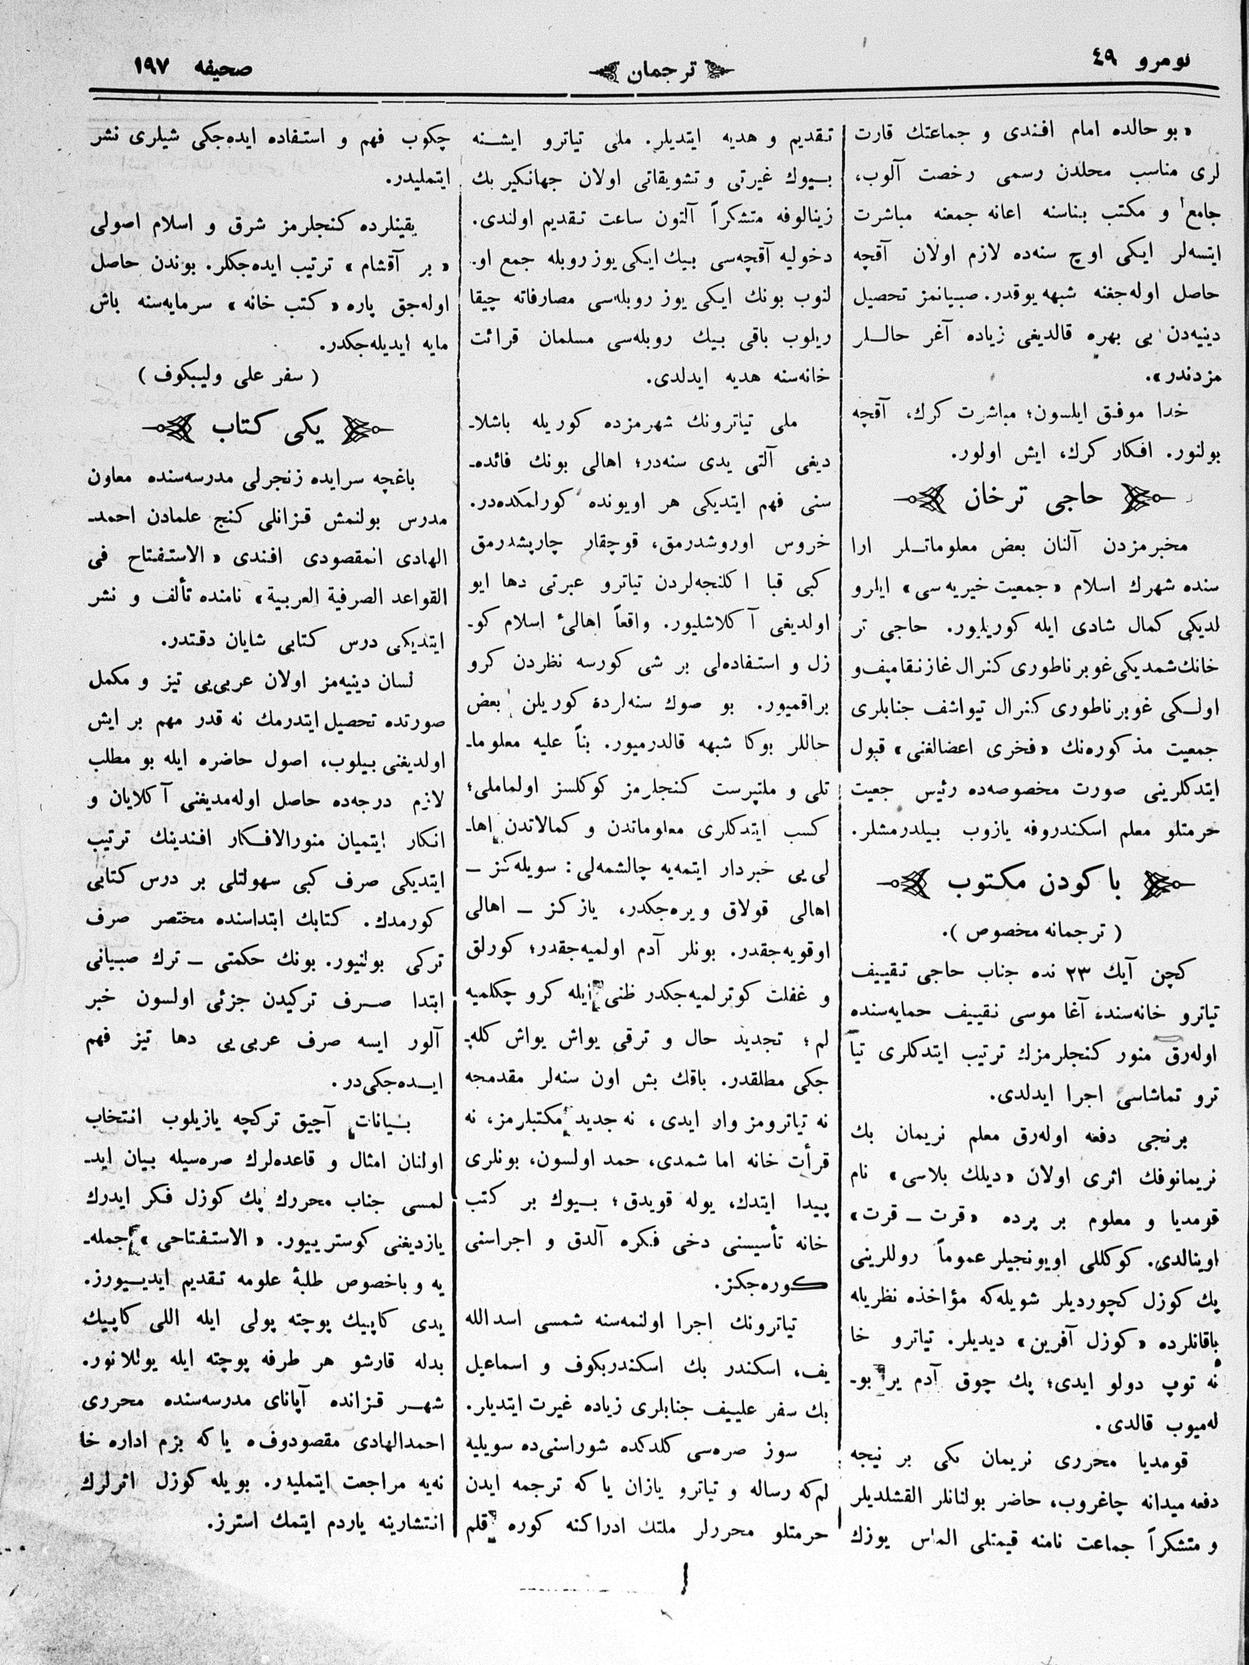 نومرو ٤٩
ترجمان
صحیفه ١٩٧
«بو حالده امام افندی و جماعتك قارت
لری مناسب محلدن رسمی رخصت آلوب،
جامع و مكتب بناسنه اعانه جمعنه مباشرت
ایتسه‌لر ایكی اوچ سنه‌ده لازم اولان آقچه
حاصل اوله‌جغنه شبهه یوقدر. صبیانمز تحصیل
دینیه‌دن بی بهره قالدیغی زیاده آغر حالـلر
مزدندر».
خدا موفق ایلسون؛ مباشرت كرك، آقچه
بولنور. افكار كرك، ایش اولور.
حاجی ترخان
مخبرمزدن آلنان بعض معلوماتـلر ارا
سنده شهرك اسلام «جمعیت خیریه سی» ایلرو
لدیكی كمال شادی ایله كوریلیور. حاجی تر
خانك شمدیكی غوبرناطوری كنرال غازنقامپف و
اولـكی غوبرناطوری كنرال تیواشف جنابلری
جمعیت مذكوره‌نك «فخری اعضالغنی» قبول
ایتدكلرینی صورت مخصوصه‌ده رئیس جعیت
حرمتلو معلم اسكندروفه یازوب بیلدرمشلر.
باكودن مكتوب
( ترجمانه مخصوص ).
كچن آیك ٢٣ نده جناب حاجی تقییف
تیاترو خانه‌سند، آغا موسی نقییف حمایه‌سنده
اوله‌رق منور كنجلرمزك ترتیب ایتدكلری تیآ
ترو تماشاسی اجرا ایدلدی.
برنجی دفعه اوله‌رق معلم نریمان بك
نریمانوفك اثری اولان «دیلك بلاسی» نام
قومدیا و معلوم بر پرده «قرت ــ قرت»
اوینالدی. كوكللی اویونجیلر عموماً روللرینی
پك كوزل كچوردیلر شویله‌كه مؤاخذه نظریله
باقانلرده «كوزل آفرین» دیدیلر. تیاترو خا
نه توپ دولو ایدی؛ پك چوق آدم یر بو‌ـ
له‌میوب قالدی.
قومدیا محرری نریمان بكی بر نیچه
دفعه میدانه چاغروب، حاضر بولنانلر القشلدیلر
و متشكراً جماعت نامنه قیمتلی الماس یوزك
تقدیم و هدیه ایتدیلر. ملی تیاترو ایشـنه
بـیوك غیرتی و تشویقاتی اولان جهانكیر بك
زینالوفه متشكراً آلتون ساعت تقدیم اولندی.
دخولیه آقچه‌سی بیك ایكی یوز روبله جمع او‌ـ
لنوب بونك ایكی یوز روبله‌سی مصارفاته چیقا
ریلوب باقی بیك روبله‌سی مسلمان قرائت
خانه‌سنه هدیه ایدلدی.
ملی تیاترونك شهرمزده كوریله باشلا‌ـ
دیغی آلتی یدی سنه‌در؛ اهالی بونك فائده‌ـ
سنی فهم ایتدیكی هر اویونده كورلمكده‌در.
خروس اوروشدرمق، قوچقار چارپشدرمق
كبی قبا اكلنجه‌لردن تیاترو عبرتی دها ایو
اولدیغی آكلاشلیور. واقعاً اهالیٔ اسلام كو‌ـ
زل و استفاده‌لی بر شی كورسه نظردن كرو
براقمیور. بو صوك سنه‌لردۀ كوریلن بعض
حاللر بوكا شبهه قالدرمیور. بناً علیه معلوما‌ـ
تلی و ملتپرست كنجلرمز كوكلسز اولماملی؛
كسب ایتدكلری معلوماتدن و كمالاتدن اها‌ـ
لی‌یی خبردار ایتمه‌یه چالشمه‌لی: سویله‌كز ــ
اهالی قولاق ویره‌جكدر، یازكز ــ اهالی
اوقویه‌جقدر. بونلر آدم اولمیه‌جقدر؛ كورلق
و غفلت كوترلمیه‌جكدر ظنی ایله كرو چكلمیه
لم؛ تجدید حال و ترقی یواش یواش كله‌ـ
جكی مطلقدر. باقك بش اون سنه‌لر مقدمجه
نه تیاترومز وار ایدی، نه جدید مكتبلرمز، نه
قرأت خانه اما شمدی، حمد اولسون، بونلری
پیدا ایتدك، یوله قویدق؛ بـیوك بر كتب
خانه تأسیسنی دخی فكره آلدق و اجراسنی
كوره‌جكز.
تیاترونك اجرا اولنمه‌سنه شمسی اسدالله
یف، اسكندر بك اسكندربكوف و اسماعیل
بك سفر علییف جنابلری زیاده غیرت ایتدیلر.
سوز صره‌سی كلدكده شوراسنی‌ده سویلیه
لم‌كه رساله و تیاترو یازان یا‌كه ترجمه ایدن
حرمتلو محررلر ملتك ادراكنه كوره قلم
چكوب فهم و استـفاده ایده‌جكی شیلری نشر
ایتملیدر.
یقینلرده كنجلرمز شرق و اسلام اصولی
«بر آقشام» ترتیب ایده‌جكلر. بوندن حاصل
اوله‌جق پاره «كتب خانه» سرمایه‌سنه باش
مایه ایدیله‌جكدر.
( سفر علی ولیبكوف )
یكی كتاب
باغچه سرایده زنجرلی مدرسه‌سنده معاون
مدرس بولنمش قـزانلی كنج علمادن احمد‌ـ
الهادی انمقصودی افندی «الاستـفتاح فی
القواعد الصرفیة العربیة» نامنده تألف و نشر
ایتدیكی درس كتابی شایان دقتدر.
لسان دینیه‌مز اولان عربی‌یی تیز و مكمل
صورتده تحصیل ایتدرمك نه قدر مهم بر ایش
اولدیغنی بیلوب، اصول حاضره ایله بو مطلب
لازم درجه‌ده حاصل اوله‌مدیغنی آكلایان و
انكار ایتمیان منورالافـكار افندینك ترتیب
ایتدیكی صرف كبی سهولتلی بر درس كتابی
كورمدك. كتابك ابتداسنده مختصر صرف
تركی بولنیور. بونك حكمتی ــ ترك صبیانی
ابتدا صـرف تركیدن جزئی اولسون خبر
آلور ایسه صرف عربی‌یی دها تیز فهم
ایـده‌جكی‌در.
بـیانات آچیق تركچه یازیلوب انتخاب
اولنان امثال و قاعده‌لرك صره‌سیله بیان اید‌ـ
لمسی جناب محررك پك كوزل فكر ایدرك
یازدیغنی كوسترییور. «الاستـفتاحی» جمله‌ـ
یه و باخصوص طلبۀ علومه تقدیم ایدیـیورز.
یدی كاپیك پوچته پولی ایله اللی كاپیك
بدله قارشو هر طرفه پوچته ایله یوللانور.
شهـر قـزانده آپانای مدرسه‌سنده محرری
احمدالهادی مقصودوفه یا‌كه بزم اداره خا
نه‌یه مراجعت ایتملیدر. بویله كوزل اثرلرك
انتشارینه یاردم ایتمك استرز.